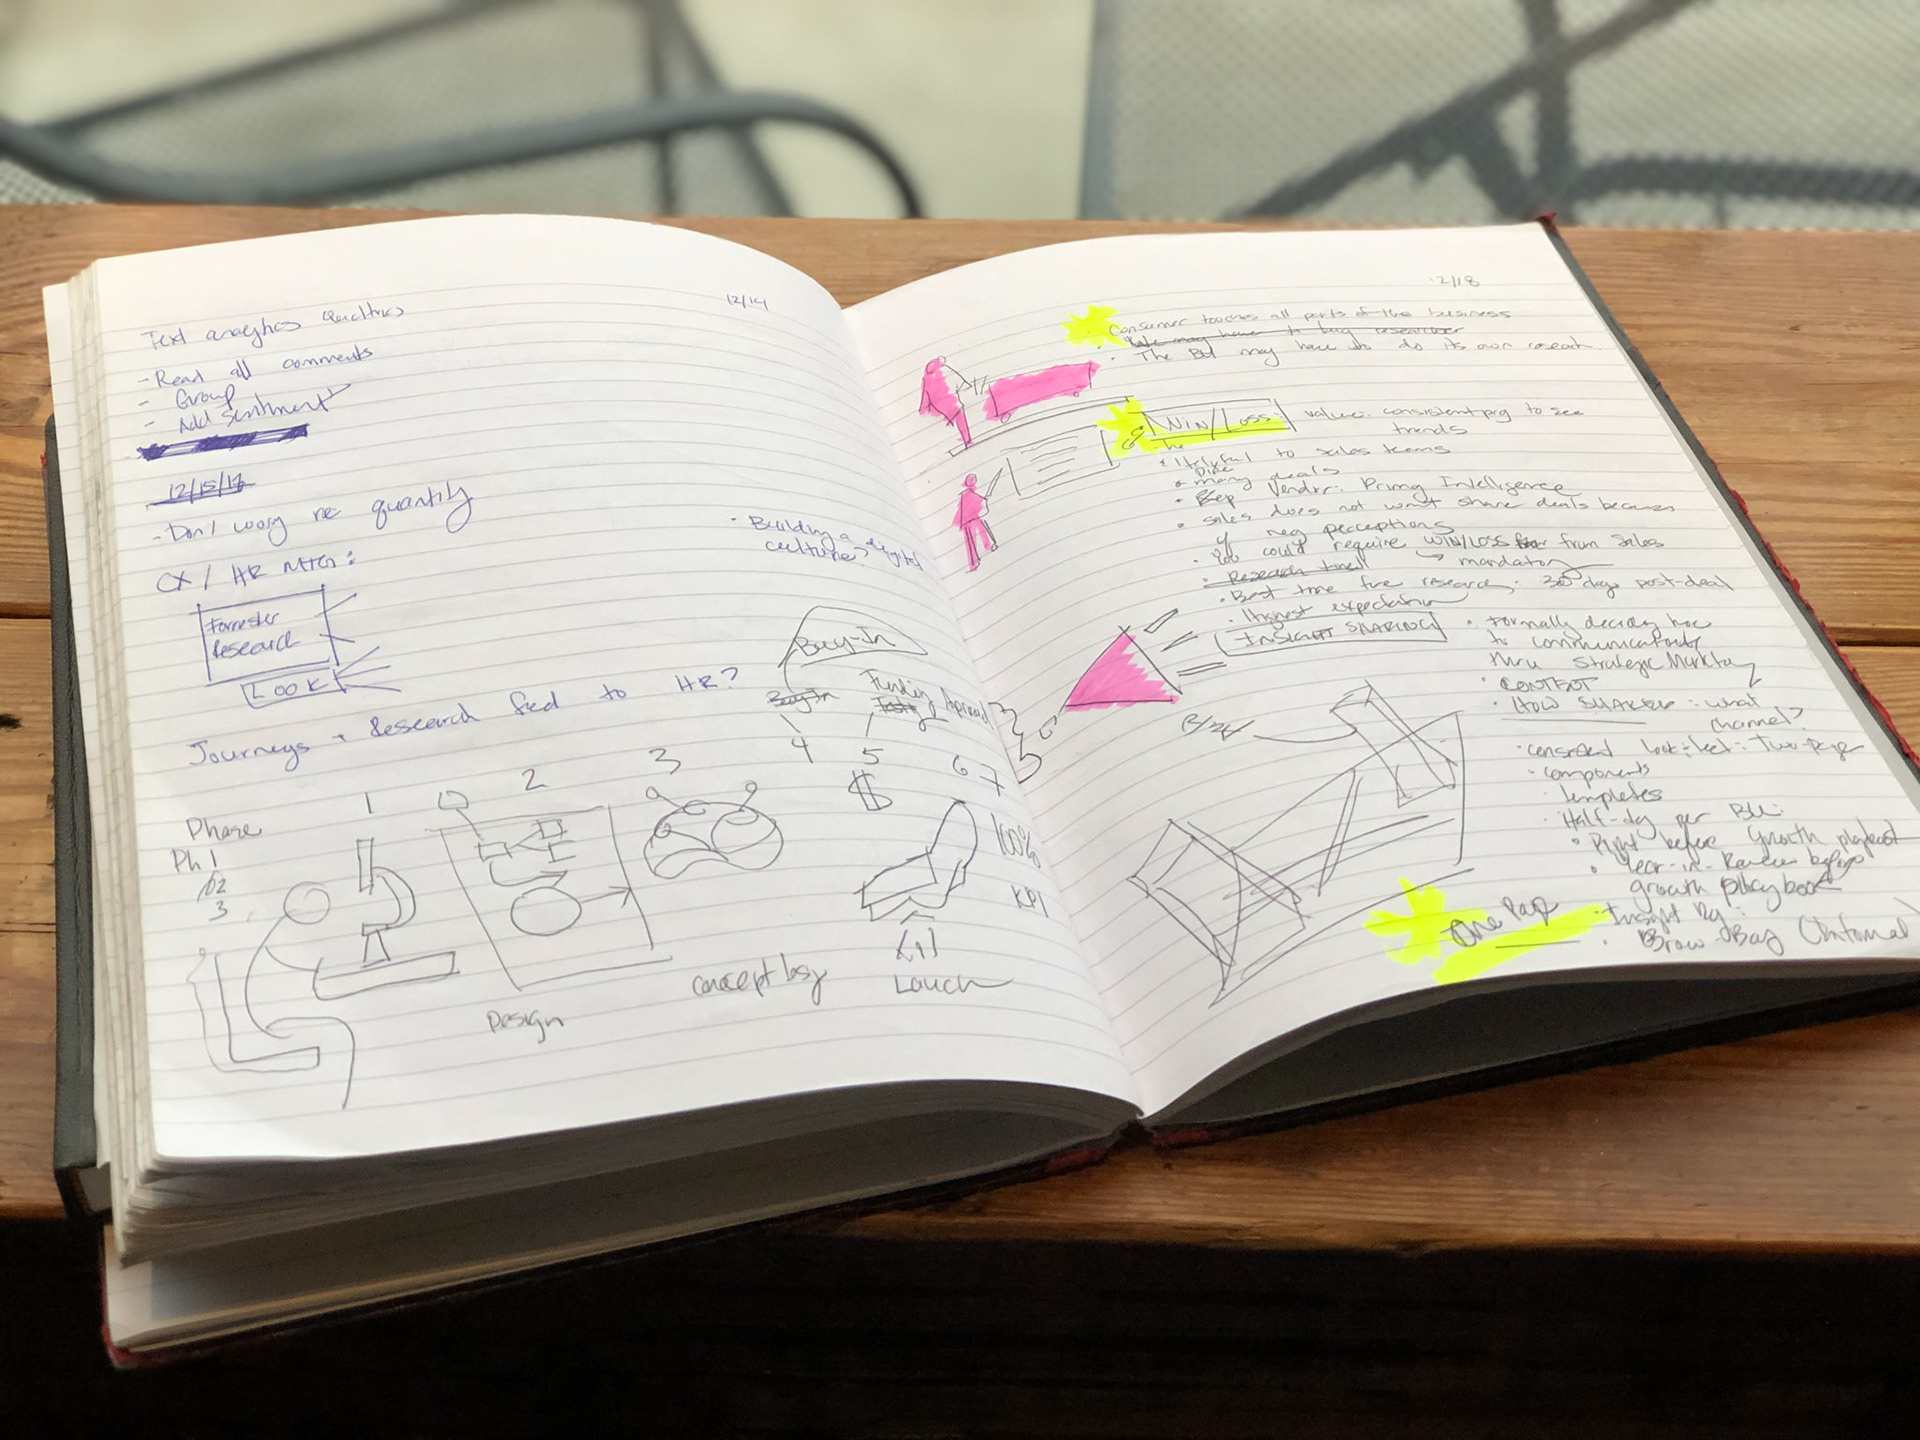 12/14
Text analytics Qualtrics
- Read all comments
- Group
- Add sentiment
12/15/17
- Don't worry re quantity
CX / HR MTG:
Forrester
Research
LOOK
• Building a digital
culture?
Buy-In
Journeys + Research fed to HR?
Buy-In Funding
4 5 6 7
Phase 1 2 3
Ph 1
2
3
$
100%
KPI
Design
concept
Lauch
12/18
• Consumer touches all parts of the business
• The BU may have to do its own reseach
WIN/LOSS: value: consistent prg to see
trends
• Helpful to sales teams
• many deals
• Vendor: Primg Intelligence
• Sales does not want share deals because
of neg perceptions
• You could require WIN/LOSS from Sales
mandatory
• Research
• Best time for research: 30 days post-deal
• Highest expectation
INSIGHT SHARING
• Formally deciding how
to communicate
thru Strategic Markting
• CONTENT
• HOW SHARED: what
channel?
• look + feel: Two-pager
• components
• templates
• Half-day per BU:
• Right before Growth playbook
• Year-in-Review before
growth playbook
One Page
• Insight
• Brown-Bag (Informal)